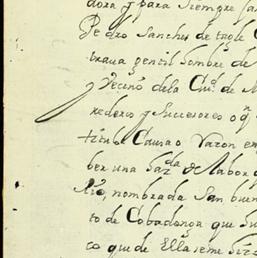 dora y para siempre ja
Pedro Sanches de tagle C
traua gentil hombre de
y Vecino dela Ciu.d de M
rederos y Successores o q.n
titulo Causa o Varon en
ber una haz.da de labor
nombrada San buen
to de Cobadonga que
co que de Ella seme